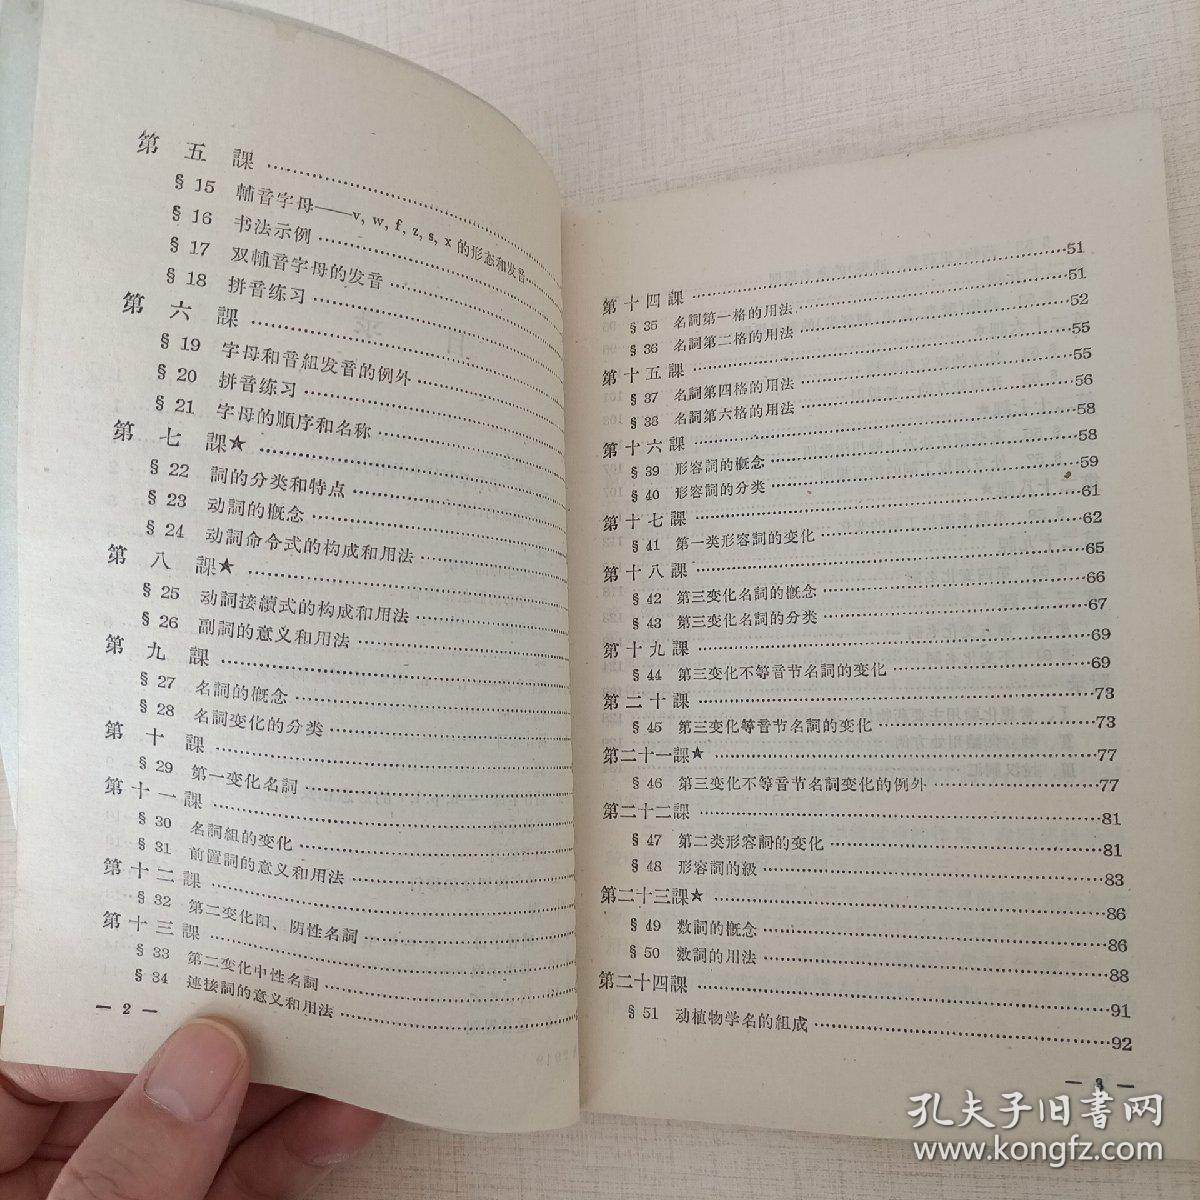 第五課
§ 15 輔音字母——v, w, f, z, s, x 的形态和发音
§ 16 书法示例
§ 17 双輔音字母的发音
§ 18 拼音练习
第六課
§ 19 字母和音組发音的例外
§ 20 拼音练习
§ 21 字母的順序和名称
第七課★
§ 22 詞的分类和特点
§ 23 动詞的概念
§ 24 动詞命令式的构成和用法
第八課★
§ 25 动詞接續式的构成和用法
§ 26 副詞的意义和用法
第九課
§ 27 名詞的概念
§ 28 名詞变化的分类
第十課
§ 29 第一变化名詞
第十一課
§ 30 名詞組的变化
§ 31 前置詞的意义和用法
第十二課
§ 32 第二变化阳、阴性名詞
第十三課
§ 33 第二变化中性名詞
§ 34 連接詞的意义和用法
— 2 —
第十四課 51
§ 35 名詞第一格的用法 51
§ 36 名詞第二格的用法 52
第十五課 55
§ 37 名詞第四格的用法 55
§ 38 名詞第六格的用法 56
第十六課 58
§ 39 形容詞的概念 58
§ 40 形容詞的分类 59
第十七課 61
§ 41 第一类形容詞的变化 62
第十八課 65
§ 42 第三变化名詞的概念 66
§ 43 第三变化名詞的分类 67
第十九課 69
§ 44 第三变化不等音节名詞的变化 69
第二十課 73
§ 45 第三变化等音节名詞的变化 73
第二十一課★ 77
§ 46 第三变化不等音节名詞变化的例外 77
第二十二課 81
§ 47 第二类形容詞的变化 81
§ 48 形容詞的級 83
第二十三課★ 86
§ 49 数詞的概念 86
§ 50 数詞的用法 88
第二十四課 91
§ 51 动植物学名的組成 92
— 3 —
孔夫子旧書网
www.kongfz.com